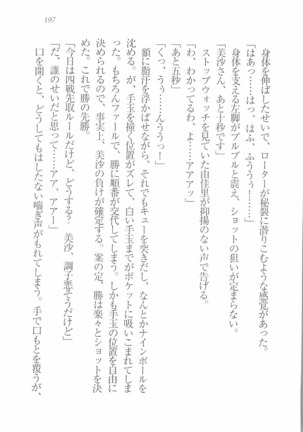 197
身体を伸ばしたせいで、ローターが秘裂に潜りこむような感覚があった。
「はあっ……はっ、はふ、ふううぅ！……」
身体を支える左脚がブルブルと震え、ショットの狙いが定まらない。
「美沙さん、あと十秒です」
ストップウォッチを見ていた由佳里が抑揚のない声で告げる。
「わ、わかってるわ、よ……アアァッ」
「あと五秒」
「くっ、うぅ……んううっ！」
額に脂汗を浮かばせながら、それでもキューを突きだし、なんとかナインボールを
沈める。が、手玉を撞く位置がズレて、白い手玉までがポケットに吸いこまれてしま
った。もちろんファールで、勝に順番が交代してしまう。しかも手玉の位置を自由に
決められるので、事実上、美沙の負けが確定する。案の定、勝は楽々とショットを決
めた。これで勝の先勝。
「今日は四戦先取ルールだけど、どうする？　美沙、調子悪そうだけど」
「だ、誰のせいだと思って……アア、アアー」
口を開くと、どうしてもはしたない喘ぎ声がもれてしまう。手で口もとを覆うが、